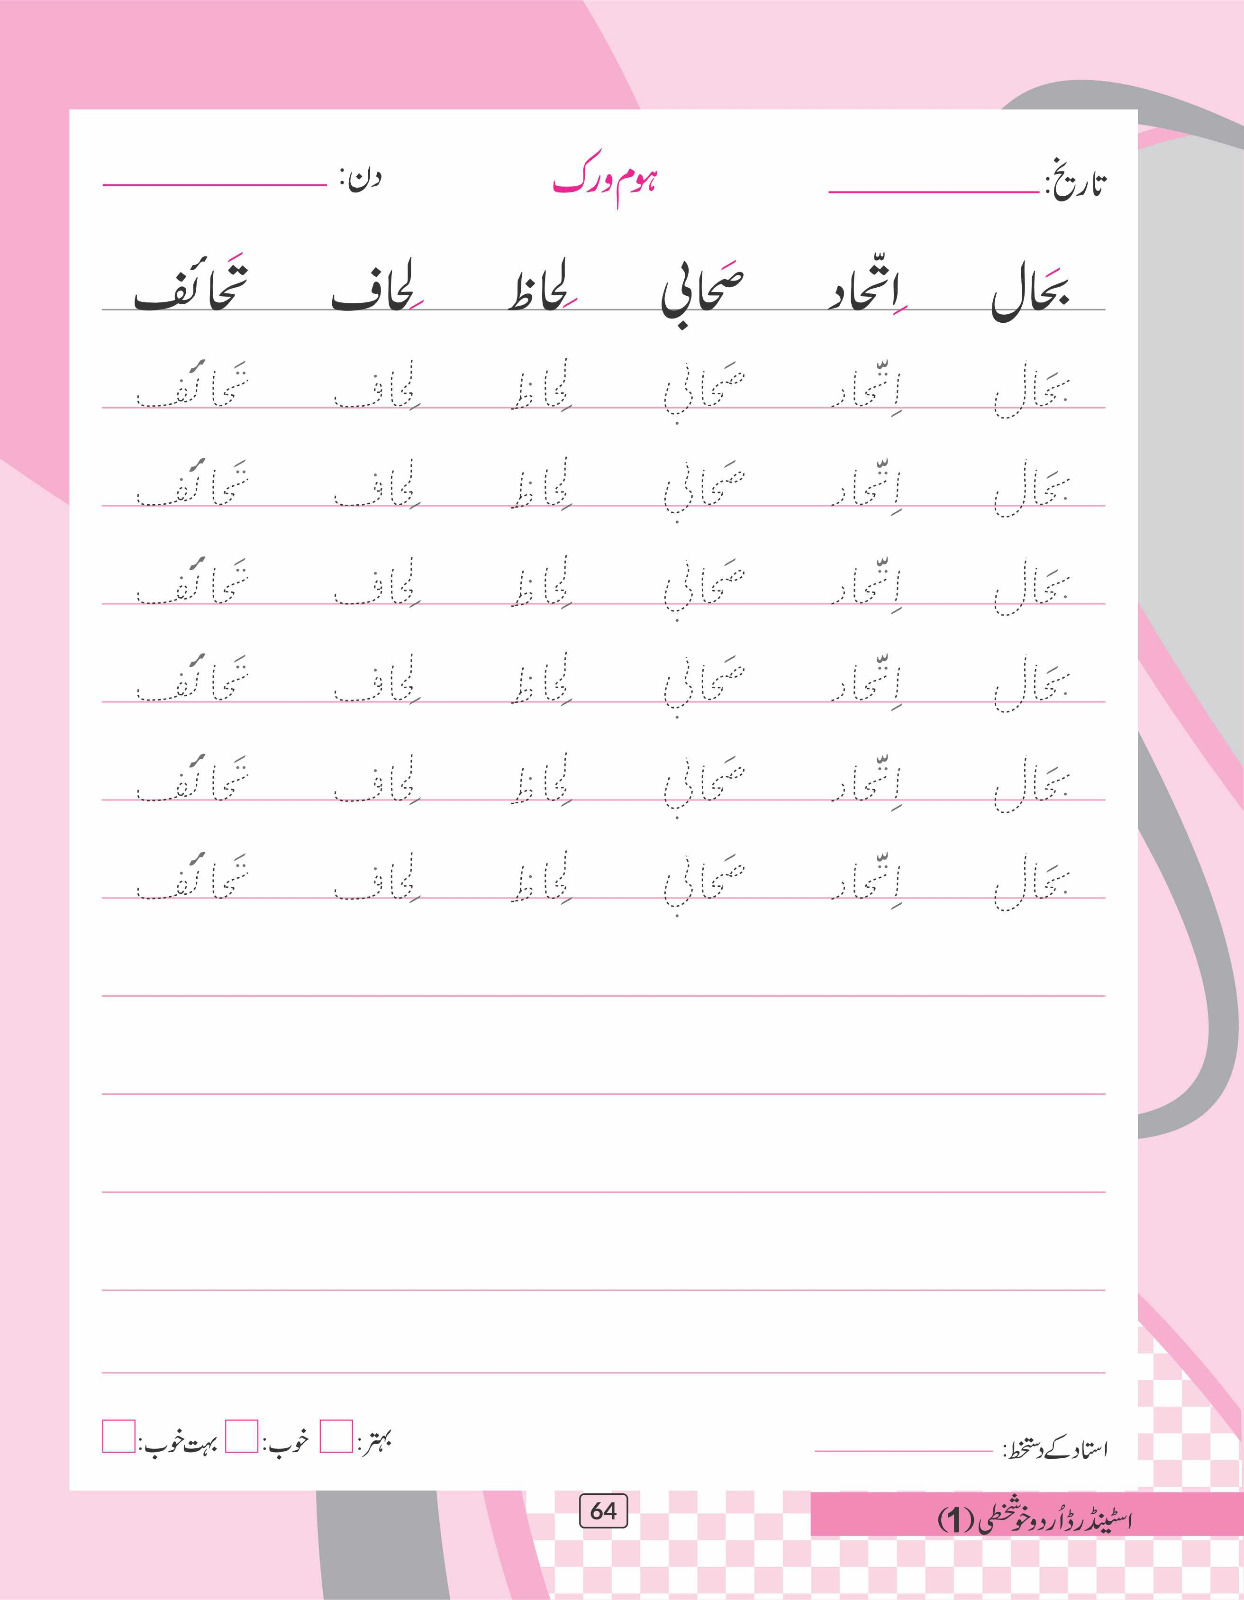 تاریخ: ہوم ورک دن:
بَحَال اِتّحاد صَحابی لِحاظ لِحاف تَحائف
بَحَال اِتّحاد صَحابی لِحاظ لِحاف تَحائف
بَحَال اِتّحاد صَحابی لِحاظ لِحاف تَحائف
بَحَال اِتّحاد صَحابی لِحاظ لِحاف تَحائف
بَحَال اِتّحاد صَحابی لِحاظ لِحاف تَحائف
بَحَال اِتّحاد صَحابی لِحاظ لِحاف تَحائف
بَحَال اِتّحاد صَحابی لِحاظ لِحاف تَحائف
استاد کے دستخط: بہتر: خوب: بہت خوب:
64
اسٹینڈرڈ اُردو خوشخطی (1)